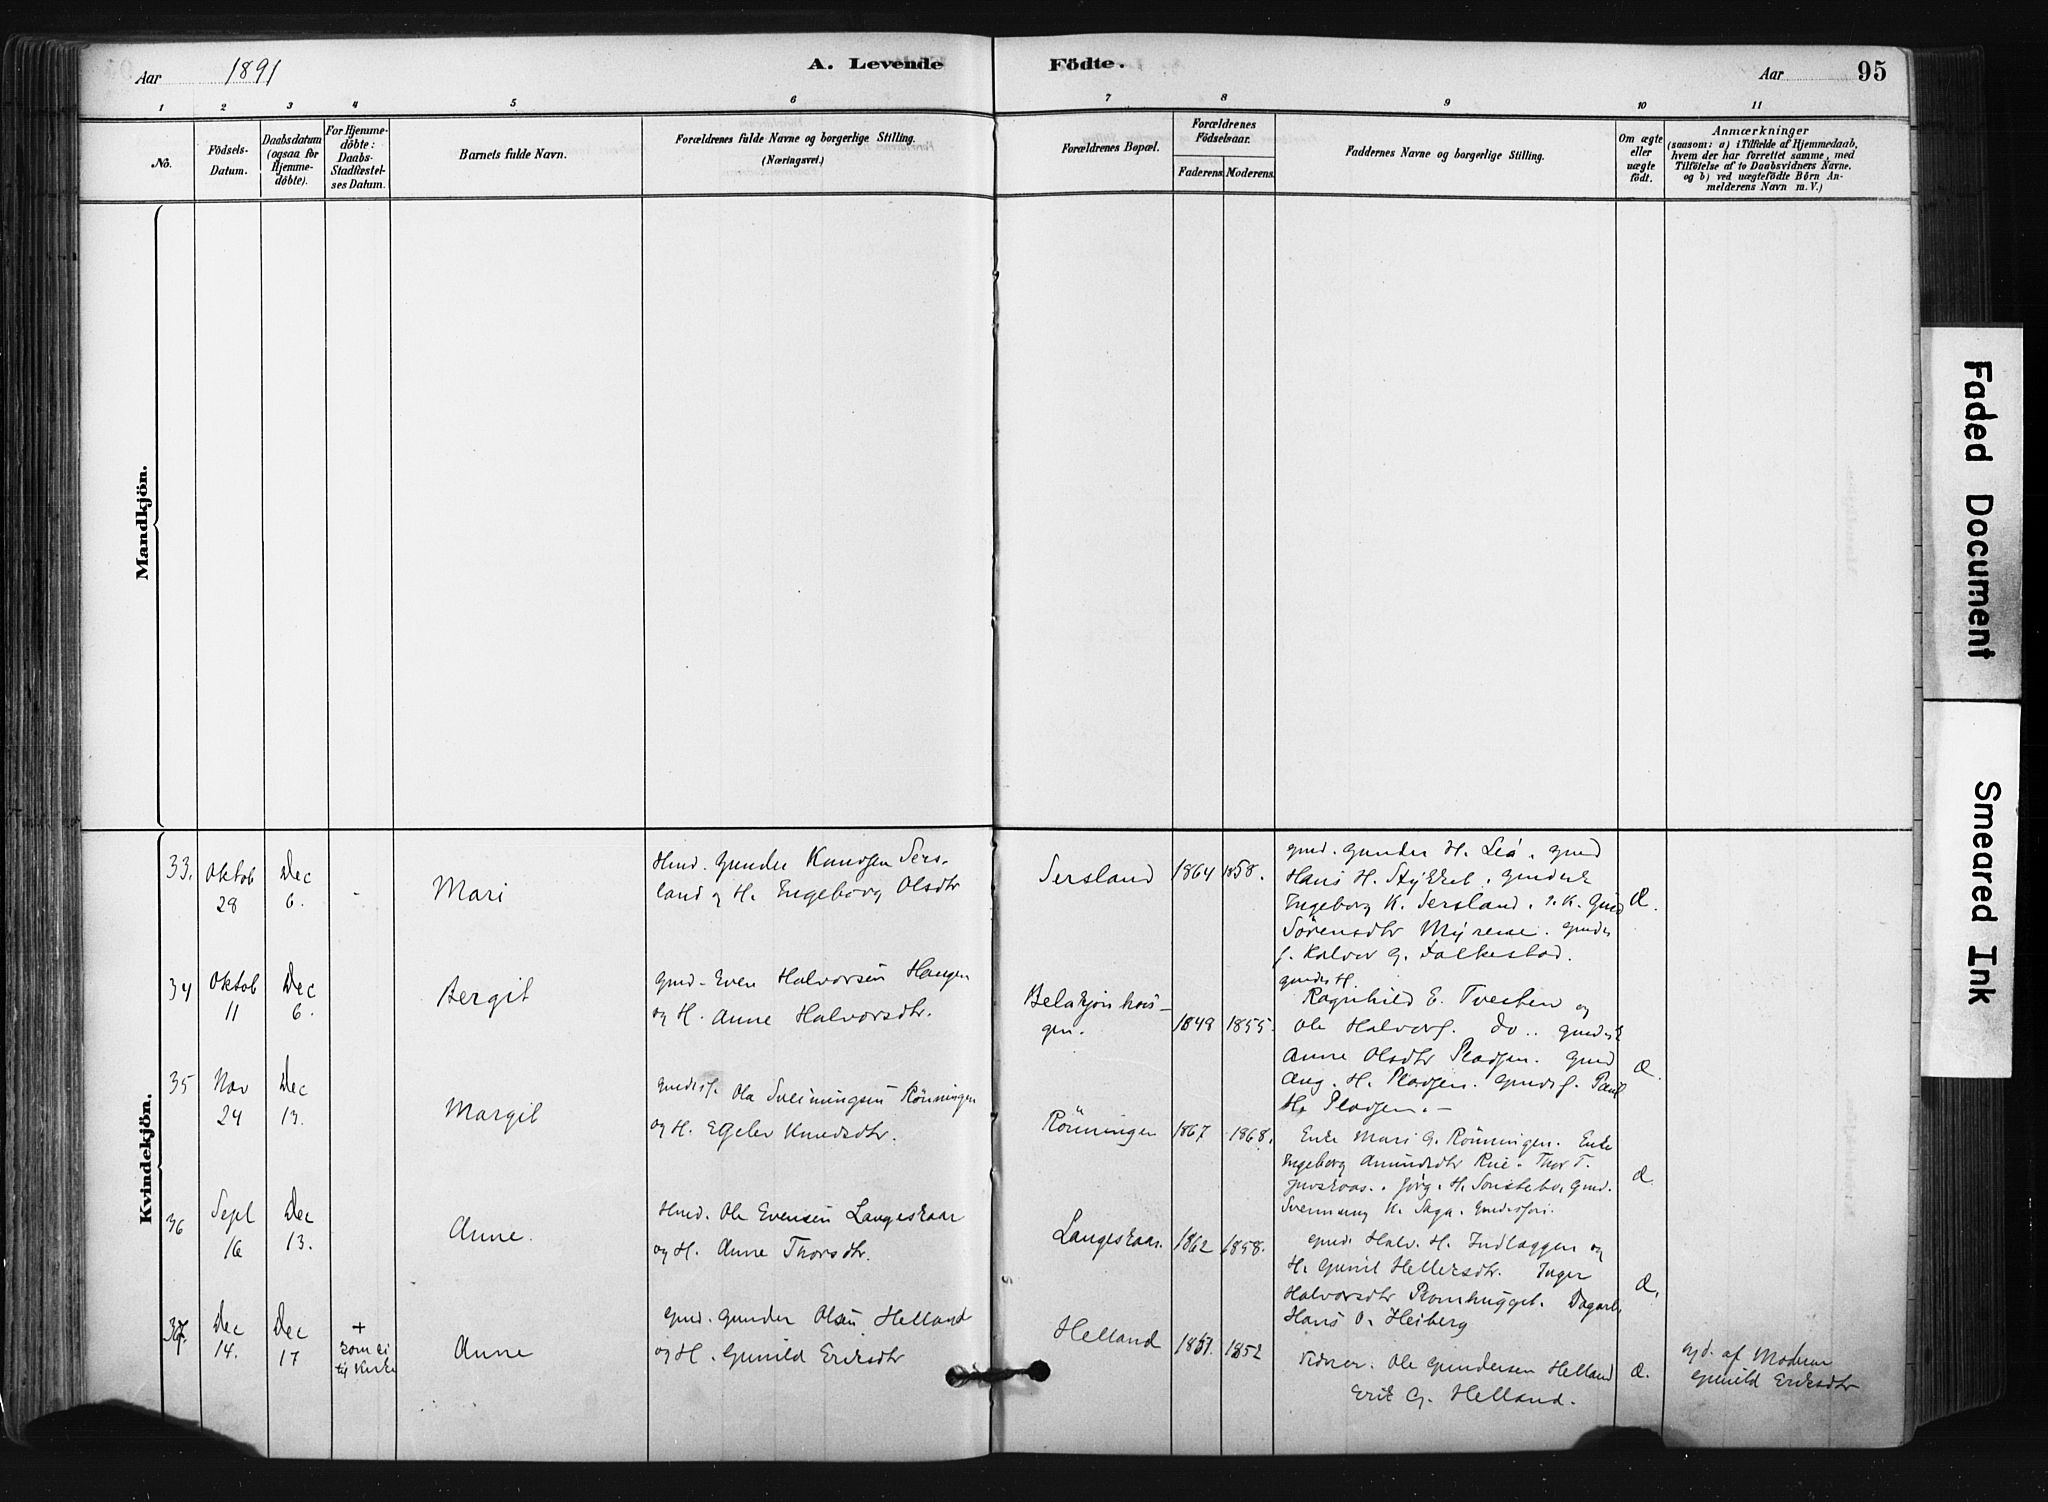 Aar 1891
A. Levende Födte.
Aar 95
1 2 3 4 5 6 7 8 9 10 11
No.
Födsels-
Datum.
Daabsdatum
(ogsaa for
Hjemme-
döbte).
For Hjemme-
döbte:
Daabs-
Stadfæstel-
ses Datum.
Barnets fulde Navn.
Forældrenes fulde Navne og borgerlige Stilling.
(Næringsvei.)
Forældrenes Bopæl.
Forældrenes
Födselsaar.
Faderens. Moderens.
Faddernes Navne og borgerlige Stilling.
Om ægte
eller
uægte
födt.
Anmærkninger
(saasom: a) i Tilfælde af Hjemmedaab,
hvem der har forrettet samme, med
Tilföielse af to Daabsvidners Navne,
og b) ved uægtefödte Börn An-
melderens Navn m. V.)
Mandkjön.
Kvindekjön.
33.
Oktob
28
Dec
6.
-
Mari
Gunder Knudsen Sers-
land og H. Ingeborg Olsdtr
Sersland
1864
1858.
Gmd. Gunder H. Lia. Gmd
Hans H.
Ingeborg K. Sersland.
Sörensdtr Myrene.
Halvor G. Falkestad.
Æ.
34
Oktob
11
Dec
6.
Bergit
Gmd. Even Halvorsen Haugen
og H. Anne Halvorsdtr.
gen.
1849
1855.
Ragnhild E. Tveiten og
Ole Halvors. do.
Anne Olsdtr Pladsen. Gmd
Aug. H. Pladsen. Paul
H. Pladsen. -
Æ.
35
Nov
24
Dec
13.
Margit
Ole Sveinungsen Rönningen
og H. Knudsdtr.
Rönningen
1867
1868.
Enke Mari G. Rönningen. Enke
Ingeborg Amundsdtr Rue. Thor T.
Sveinung K. Saga.
Æ.
36
Sept
16
Dec
13.
Anne.
Hmd. Ole Evensen Langeskaar
og H. Anne Thorsdtr.
Langeskaar.
1862
1858.
Gmd. Halv. H. Indlæggen og
H. Gunil Hellersdtr. Inger
Halvorsdtr
Hans O. Heiberg
Æ.
37.
Dec
14.
Dec
17
+
kom ei
til Kirke
Anne
Gmd. Gunder Olsen Helland
og H. Gunild Eriksdtr
Helland
1851.
1852
Vidner. Ole Gundersen Helland
Erik G. Helland.
Æ.
gjd. af Modren
Gunild Eriksdtr
Faded Document
Smeared Ink